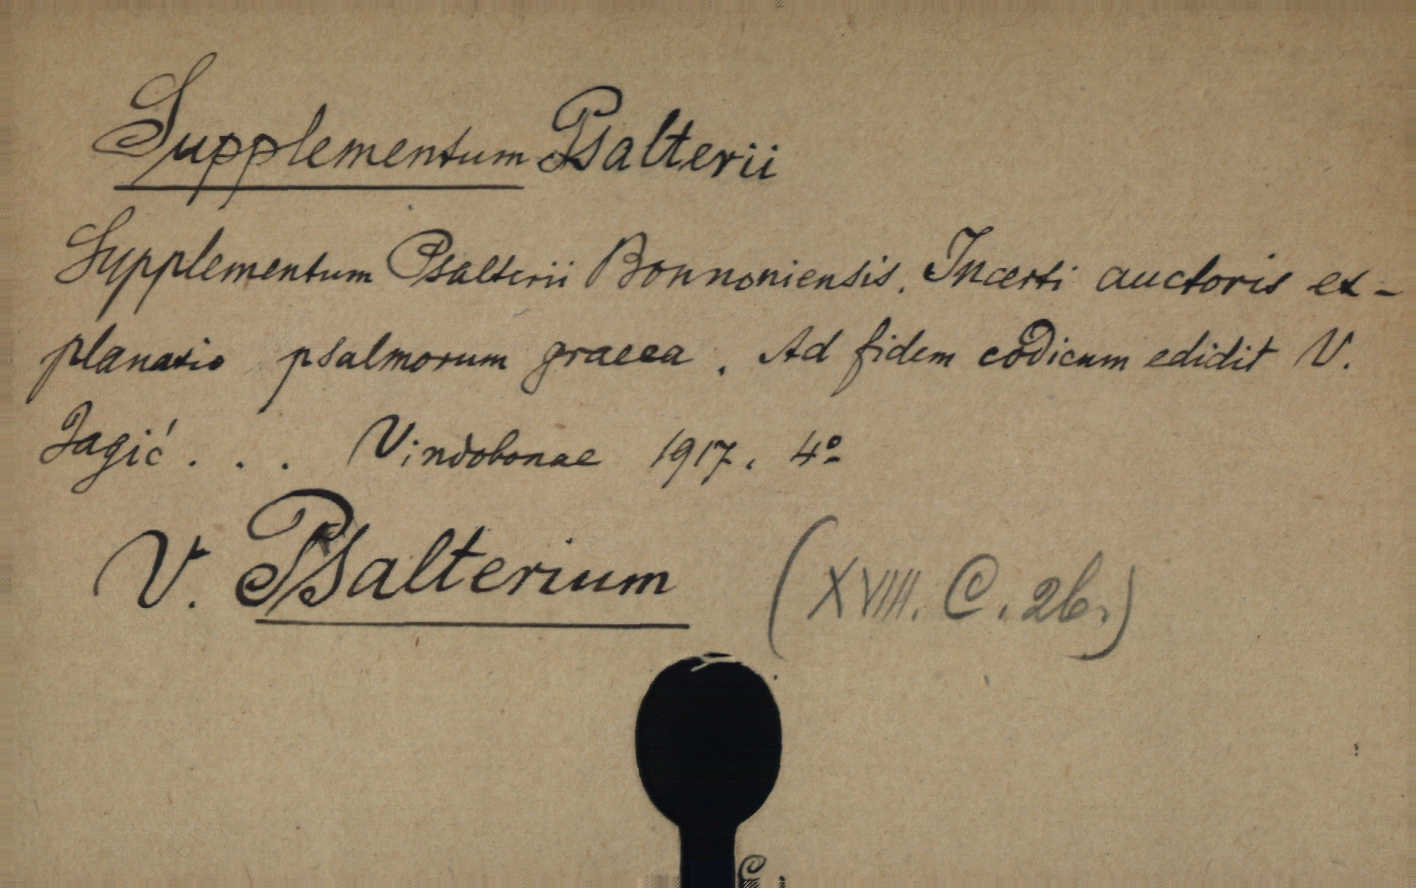 Supplementum Psalterii
Supplementum Psalterii Bonnoniensis. Incerti auctoris ex-
planatio psalmorum graeca. Ad fidem codicum edidit V.
Jagić . . . Vindobonae 1917. 4º
V. Psalterium (XVIII. C. 26.)